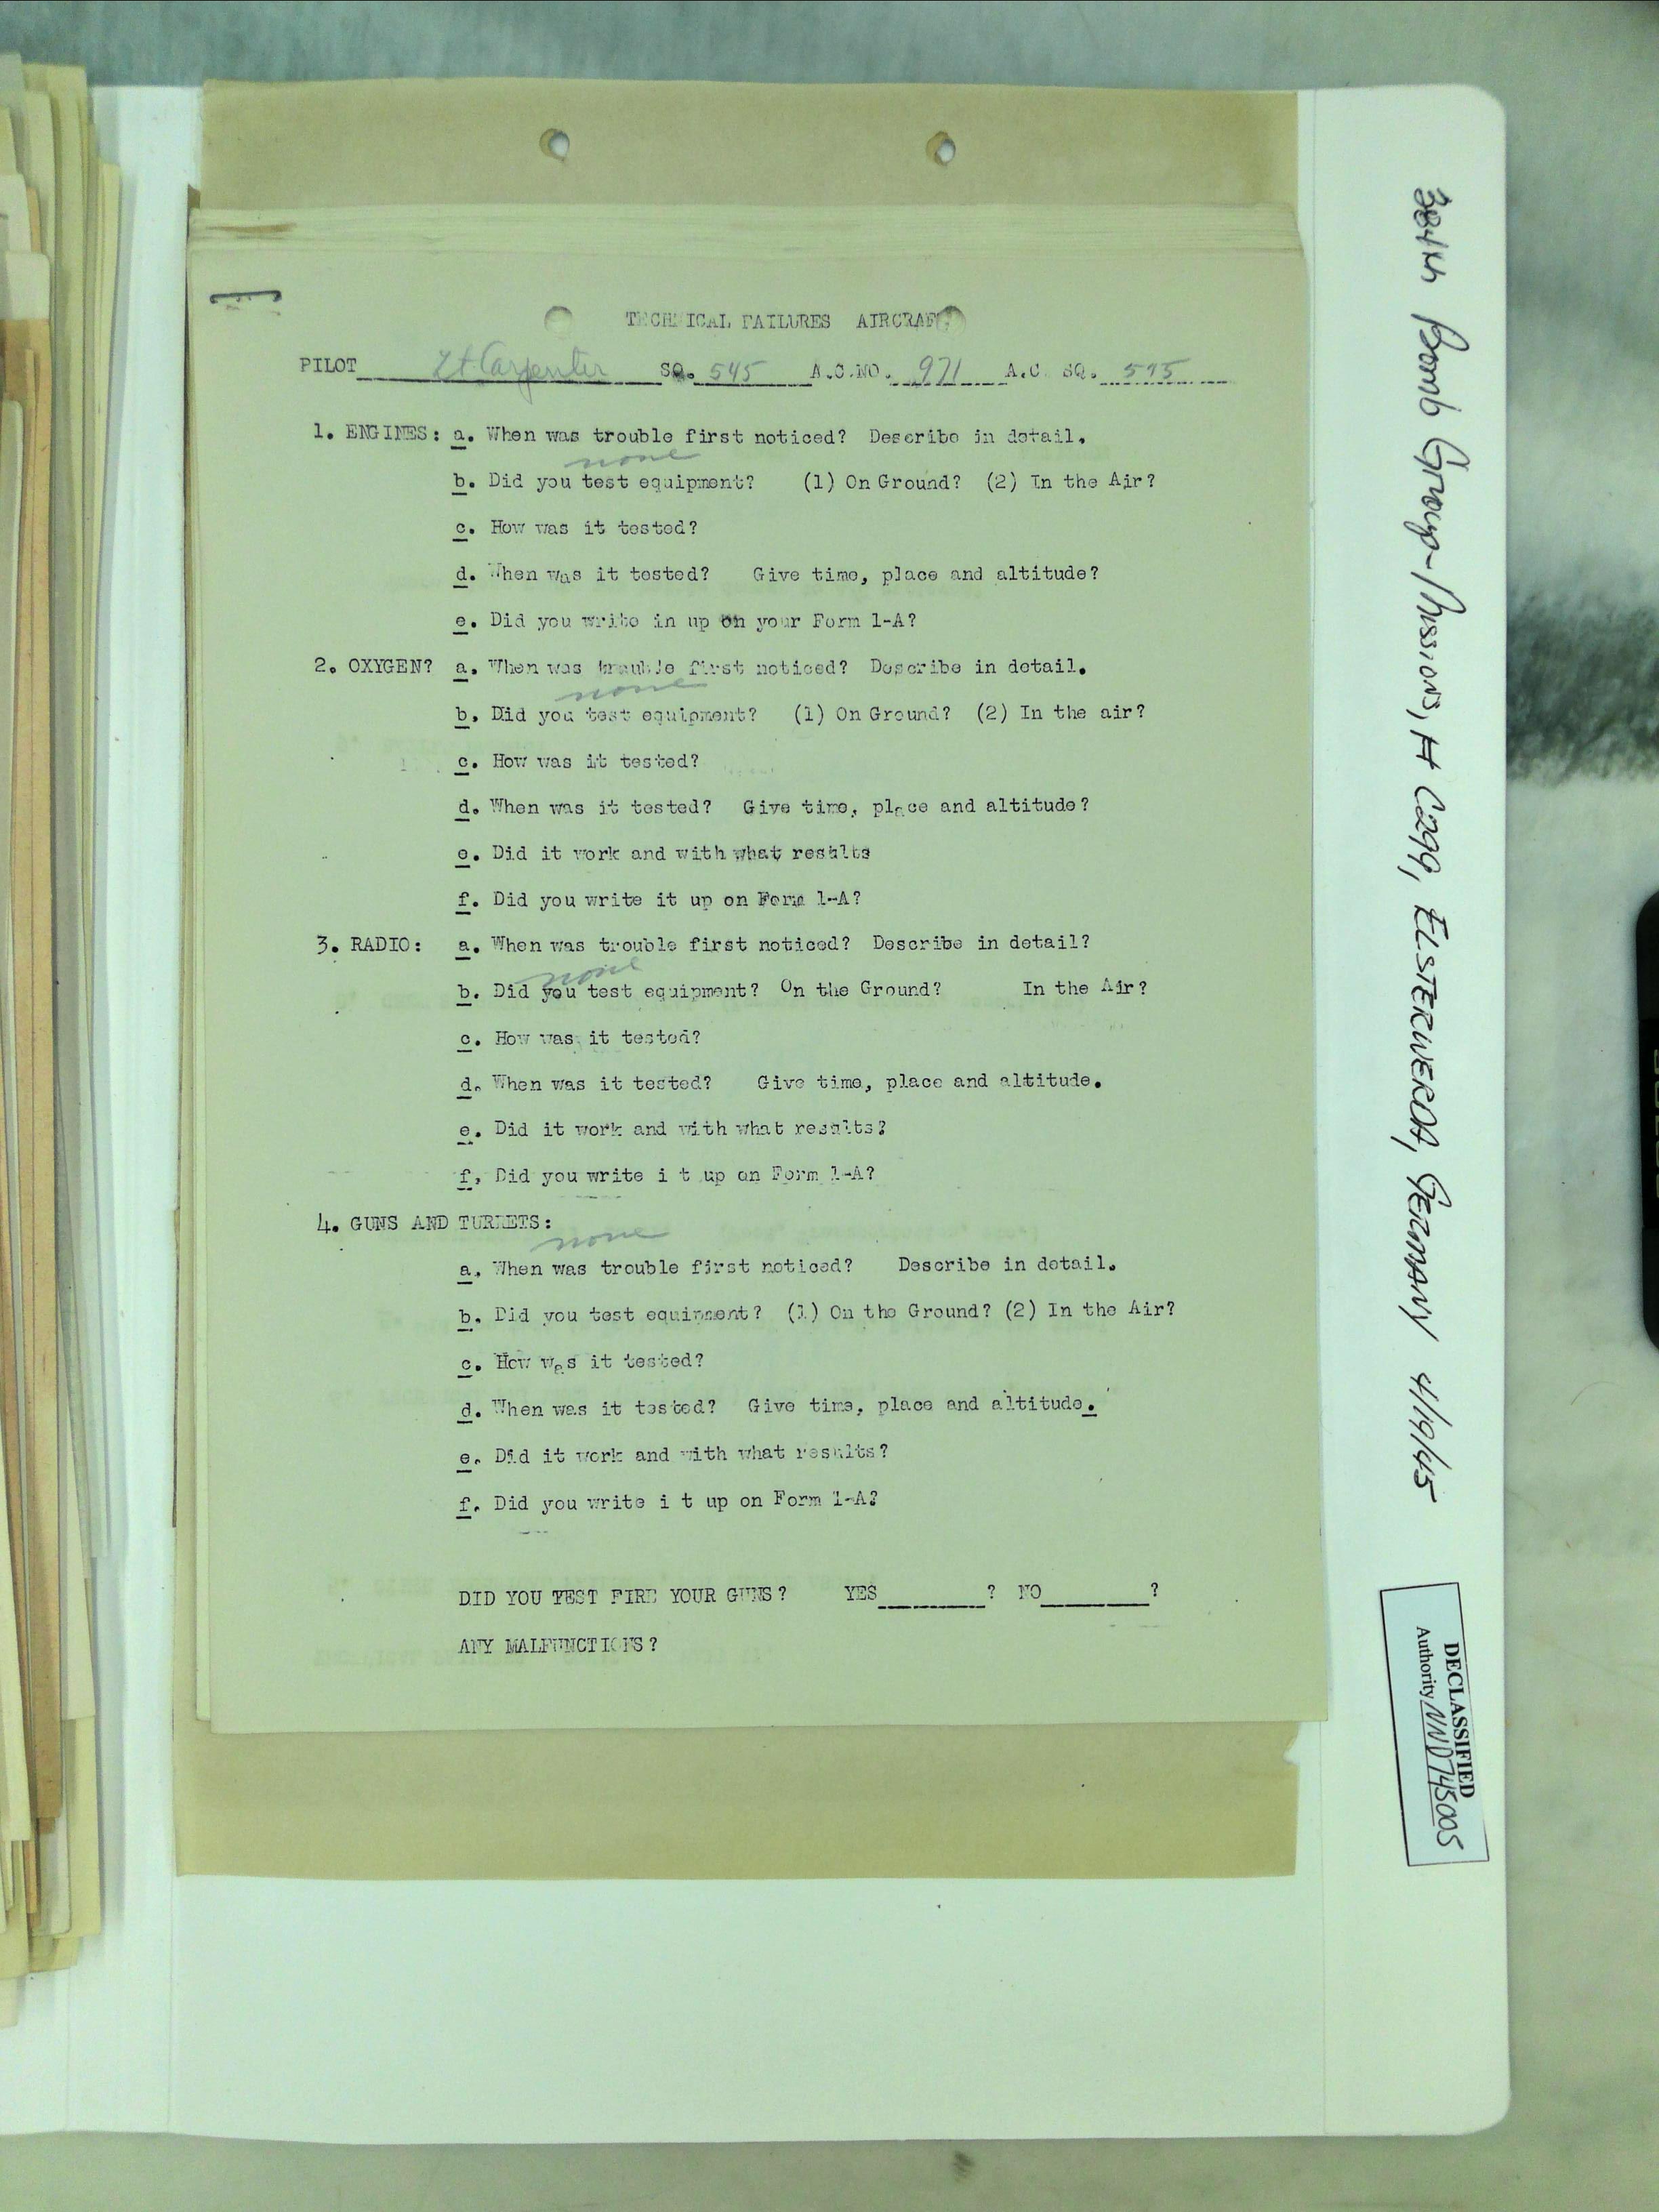 TECHNICAL FAILURES AIRCRAFT
PILOT Lt Carpenter SQ. 545 A.C.NO. 971 A.C. SQ. 545
1. ENGINES: a. When was trouble first noticed? Describe in detail.
none
b. Did you test equipment? (1) On Ground? (2) In the Air?
c. How was it tested?
d. When was it tested? Give time, place and altitude?
e. Did you write in up on your Form 1-A?
2. OXYGEN? a. When was trauble first noticed? Describe in detail.
none
b. Did you test equipment? (1) On Ground? (2) In the air?
c. How was it tested?
d. When was it tested? Give time, place and altitude?
e. Did it work and with what results
f. Did you write it up on Form 1-A?
3. RADIO: a. When was trouble first noticed? Describe in detail?
none
b. Did you test equipment? On the Ground? In the Air?
c. How was it tested?
d. When was it tested? Give time, place and altitude.
e. Did it work and with what results?
f. Did you write i t up on Form 1-A?
4. GUNS AND TURRETS:
none
a. When was trouble first noticed? Describe in detail.
b. Did you test equipment? (1) On the Ground? (2) In the Air?
c. How was it tested?
d. When was it tested? Give time, place and altitude.
e. Did it work and with what results?
f. Did you write i t up on Form 1-A?
DID YOU TEST FIRE YOUR GUNS? YES ? NO ?
ANY MALFUNCTIONS?
384th Bomb Group-Missions, # 299, ELSTERWERDA, GERMANY 4/19/45
DECLASSIFIED
Authority NND 745005